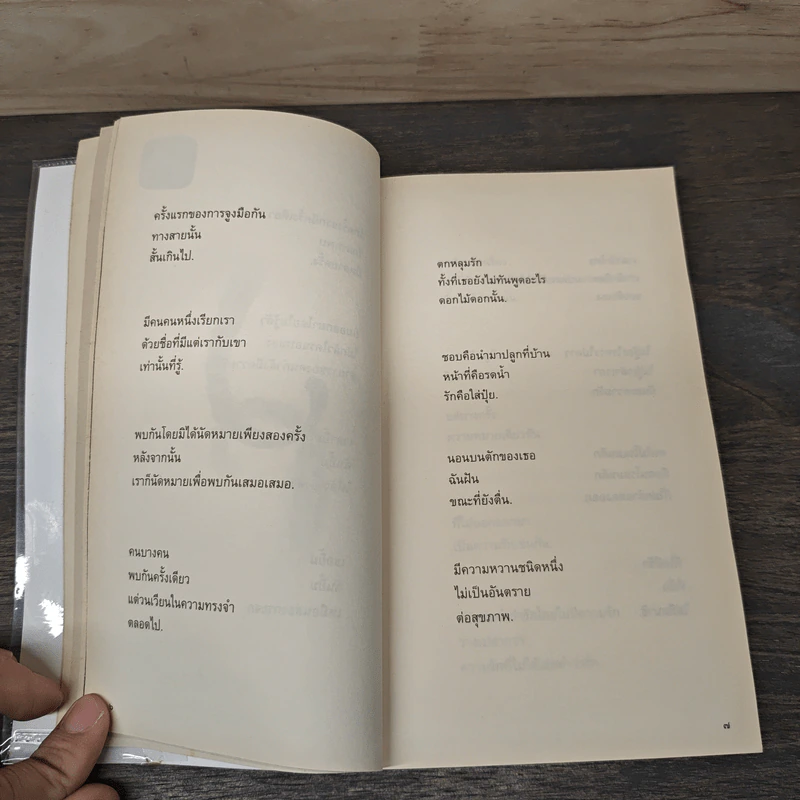 ครั้งแรกของการจูงมือกัน
ทางสายนั้น
สั้นเกินไป.
มีคนคนหนึ่งเรียกเรา
ด้วยชื่อที่มีแต่เรากับเขา
เท่านั้นที่รู้.
พบกันโดยมิได้นัดหมายเพียงสองครั้ง
หลังจากนั้น
เราก็นัดหมายเพื่อพบกันเสมอเสมอ.
คนบางคน
พบกันครั้งเดียว
แต่วนเวียนในความทรงจำ
ตลอดไป.
ตกหลุมรัก
ทั้งที่เธอยังไม่ทันพูดอะไร
ดอกไม้ดอกนั้น.
ชอบคือนำมาปลูกที่บ้าน
หน้าที่คือรดน้ำ
รักคือใส่ปุ๋ย.
นอนบนตักของเธอ
ฉันฝัน
ขณะที่ยังตื่น.
มีความหวานชนิดหนึ่ง
ไม่เป็นอันตราย
ต่อสุขภาพ.
๗